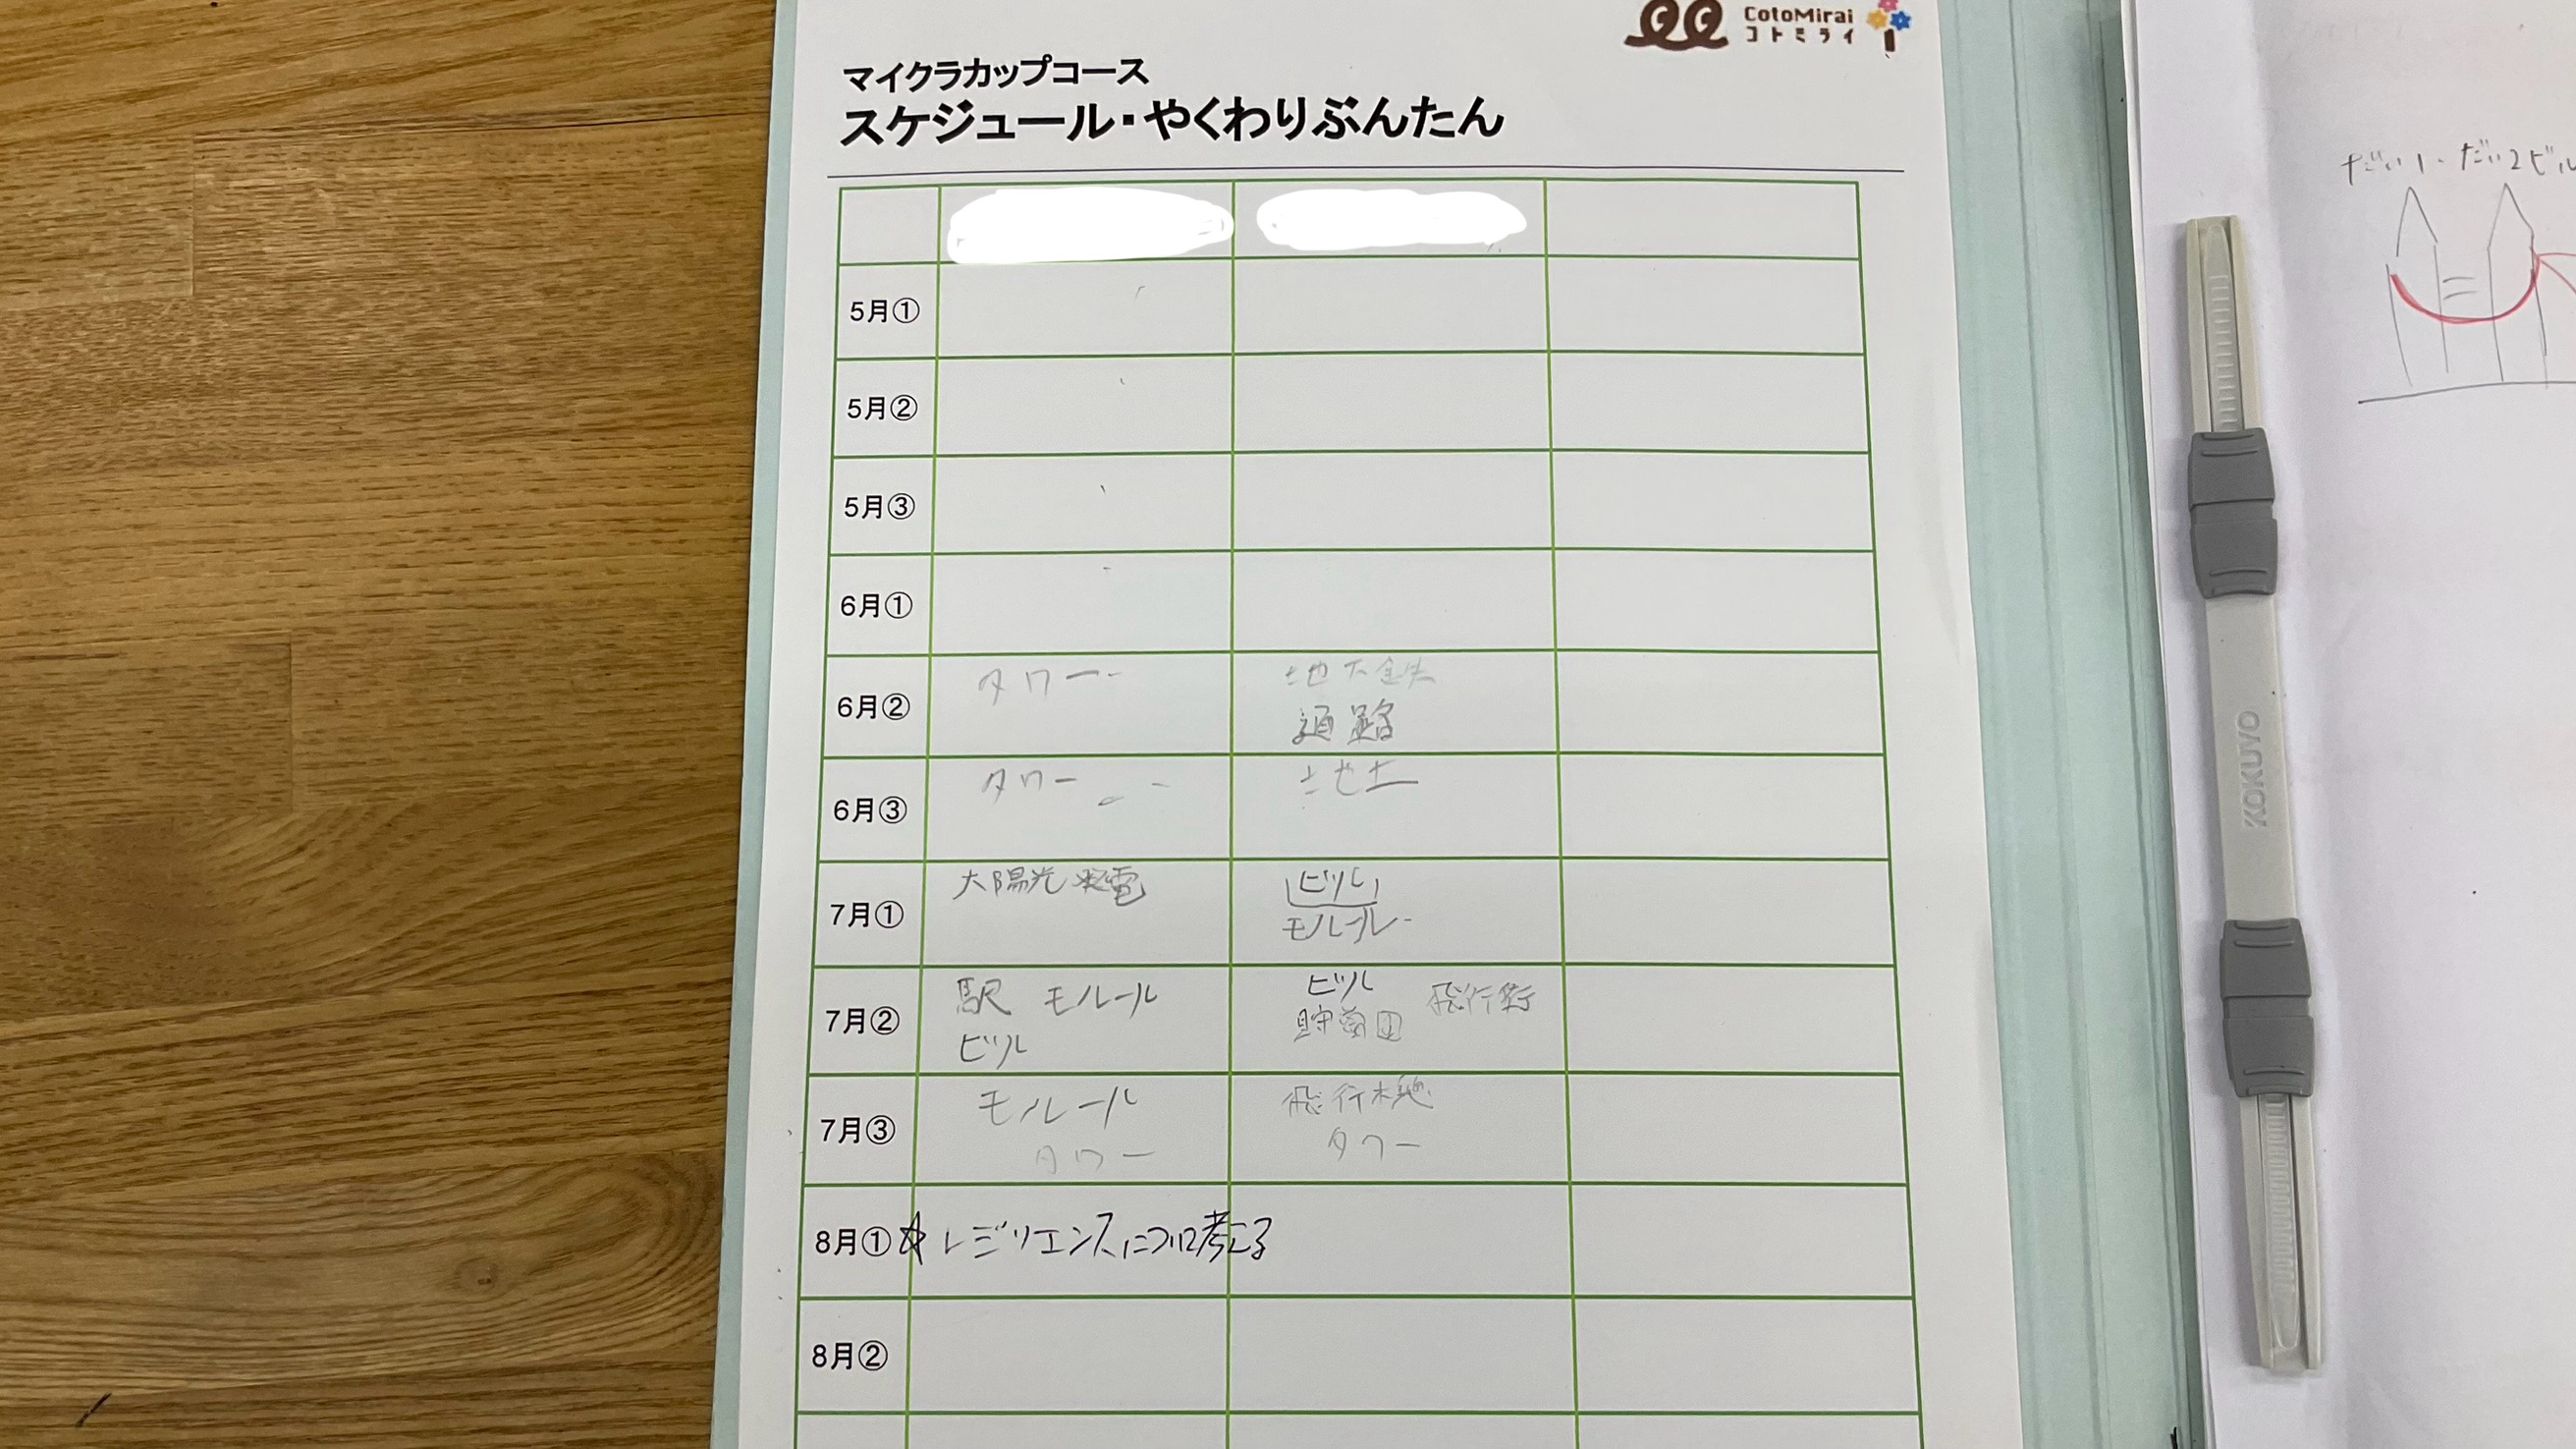 CotoMirai
コトミライ
マイクラカップコース
スケジュール・やくわりぶんたん
5月①
5月②
5月③
6月①
6月② タワー 地下鉄
通路
6月③ タワー
7月① 太陽光発電 ビル
モノレール
7月② 駅 モノレール ビル 飛行
ビル
7月③ モノレール 飛行機
タワー タワー
8月① ☆レジリエンスについて考える
8月②
だい1・だい2ビル
KOKUYO